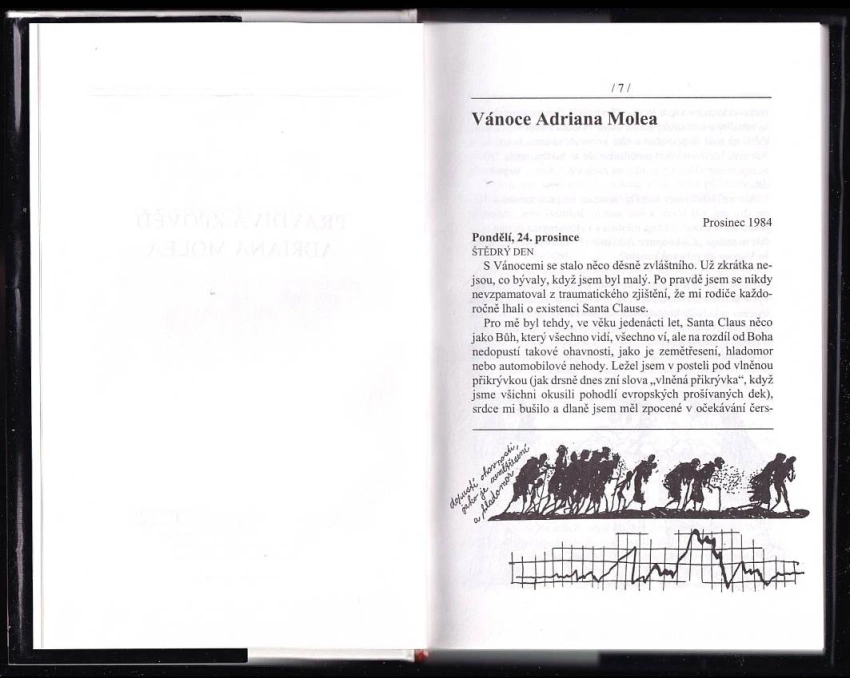 / 7 /
Vánoce Adriana Molea
Prosinec 1984
Pondělí, 24. prosince
ŠTĚDRÝ DEN
S Vánocemi se stalo něco děsně zvláštního. Už zkrátka ne-
jsou, co bývaly, když jsem byl malý. Po pravdě jsem se nikdy
nevzpamatoval z traumatického zjištění, že mi rodiče každo-
ročně lhali o existenci Santa Clause.
Pro mě byl tehdy, ve věku jedenácti let, Santa Claus něco
jako Bůh, který všechno vidí, všechno ví, ale na rozdíl od Boha
nedopustí takové ohavnosti, jako je zemětřesení, hladomor
nebo automobilové nehody. Ležel jsem v posteli pod vlněnou
přikrývkou (jak drsně dnes zní slova „vlněná přikrývka“, když
jsme všichni okusili pohodlí evropských prošívaných dek),
srdce mi bušilo a dlaně jsem měl zpocené v očekávání čers-
dopustí ohavnosti,
jako je zemětřesení
a hladomor
PRAVDIVÁ ZPOVĚĎ
ADRIANA MOLEA